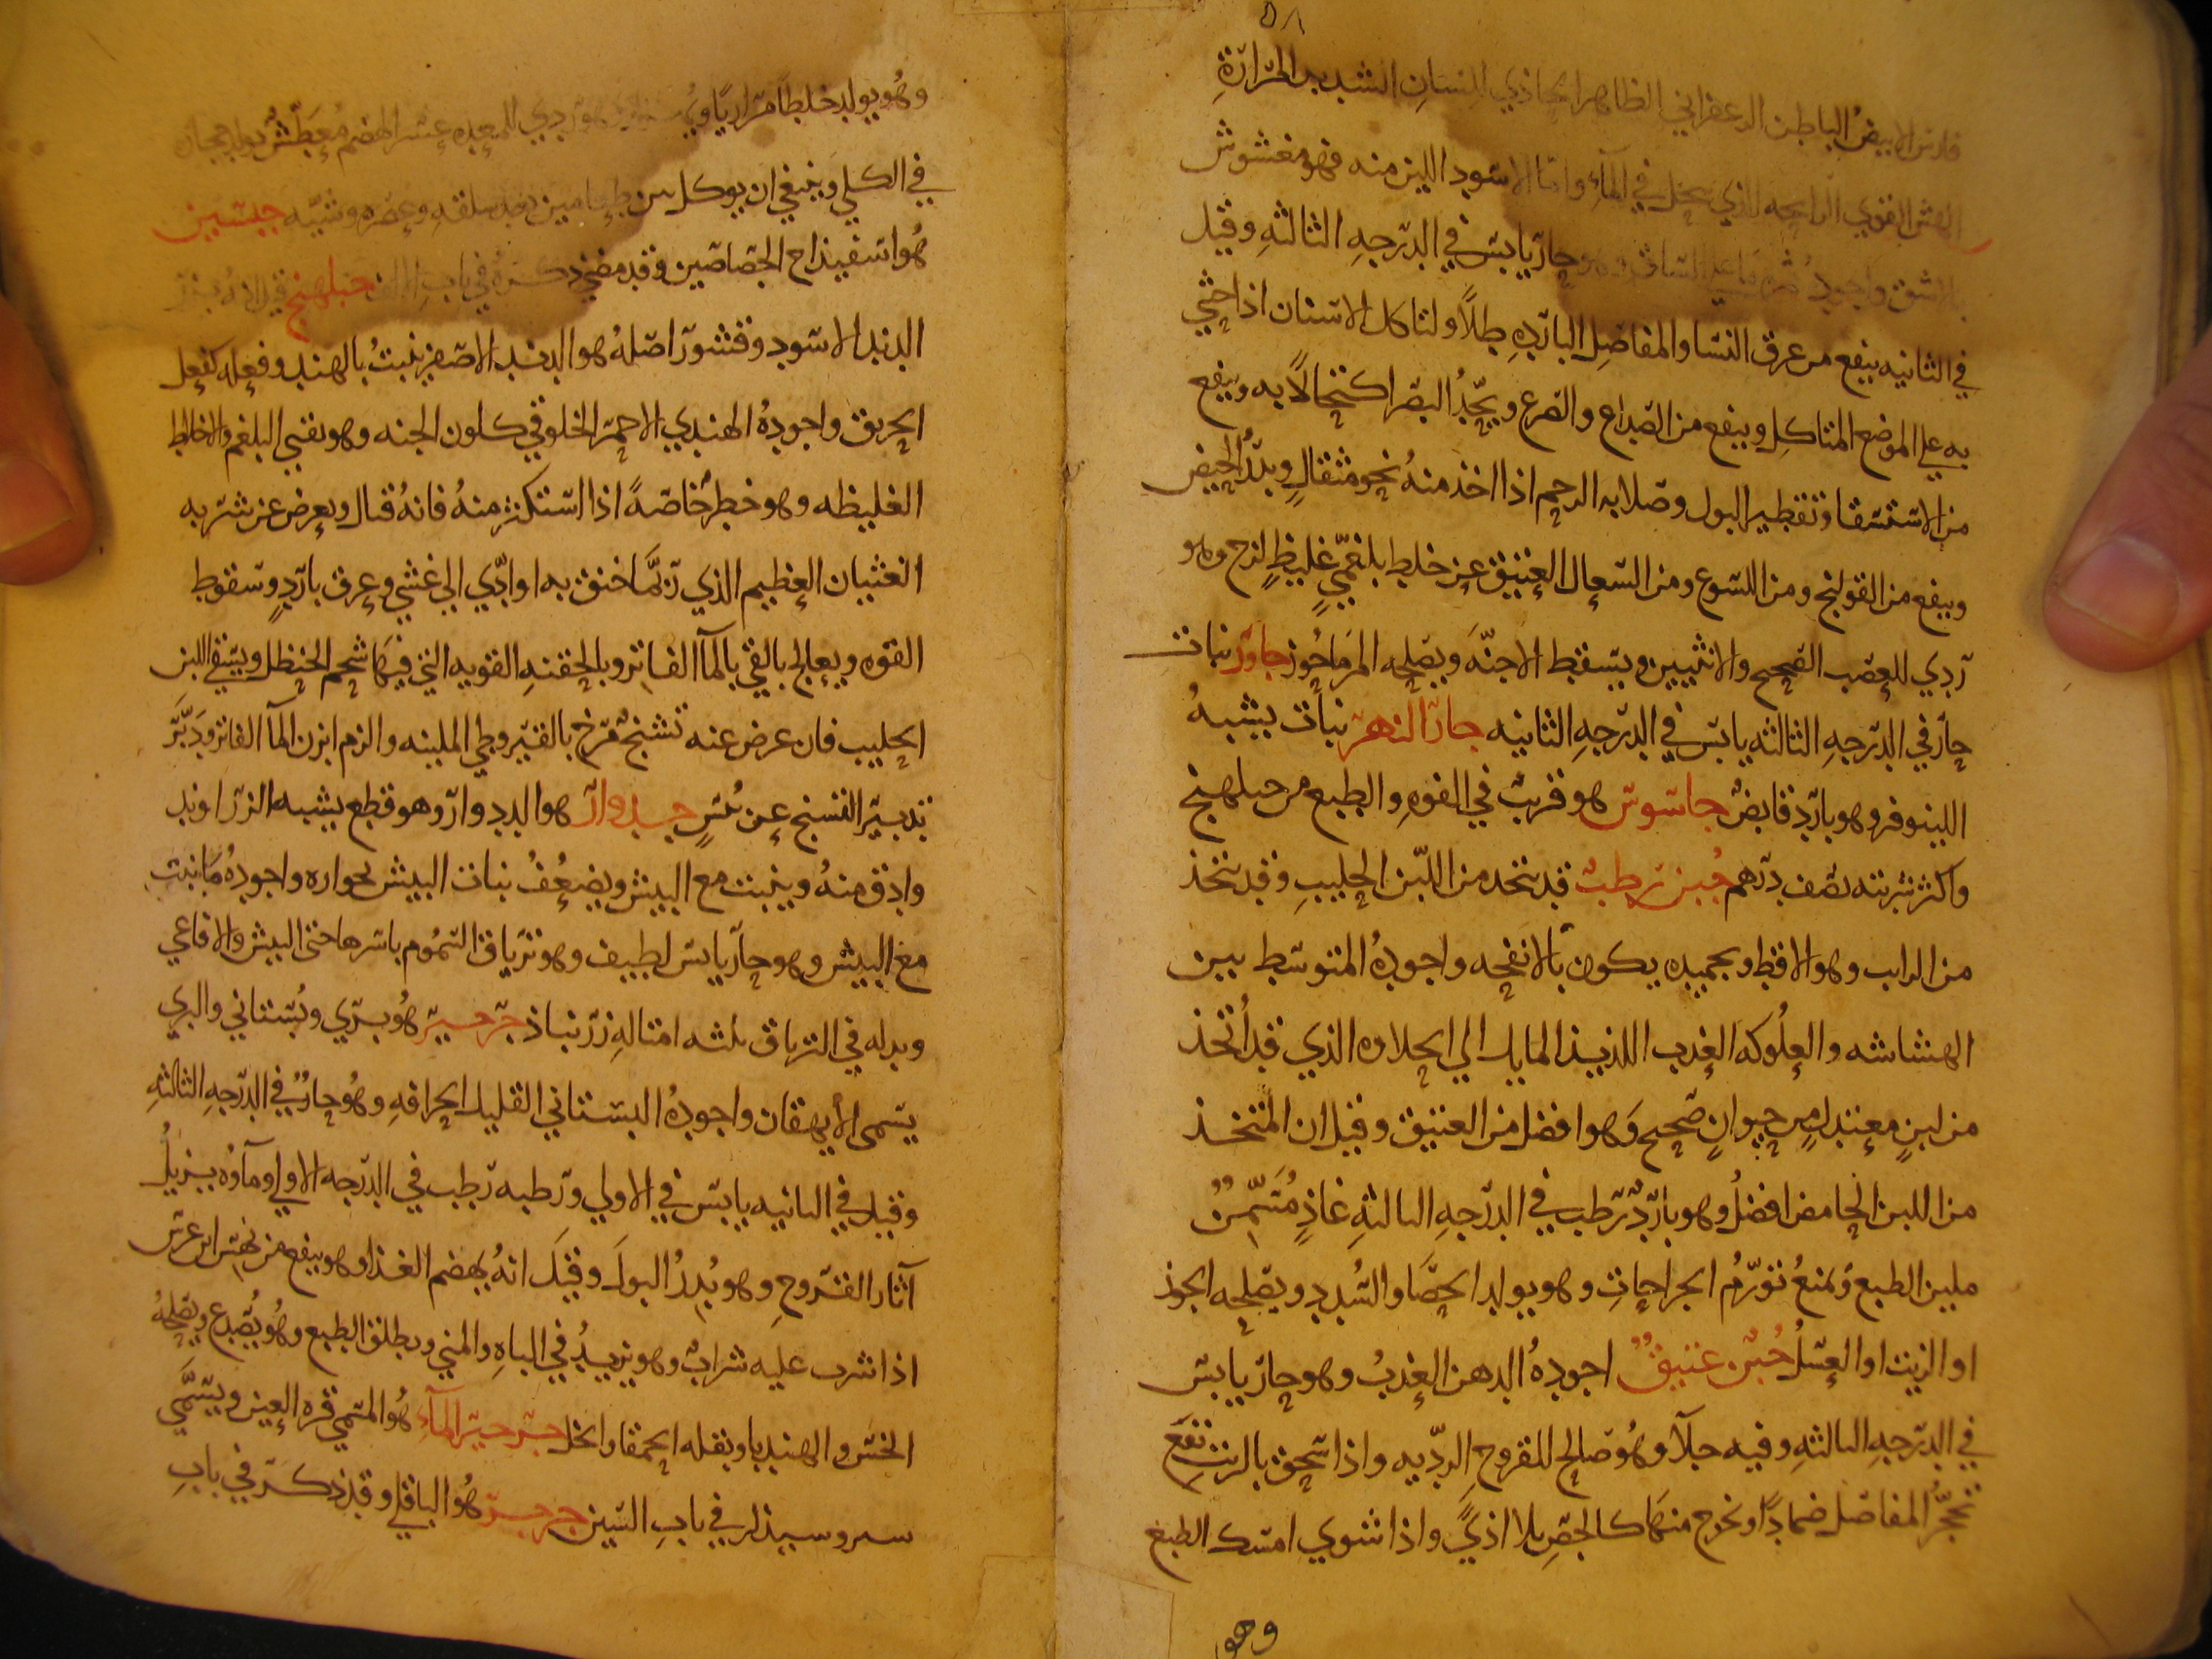 ٥٨
فارس الابيض الباطن الزعفراني الظاهر الحاذي للسان الشديد المرارة
الهش القوي الرايحه الذي ينحل في الماء واما الاسود اللين منه فهو مغشوش
بالاشق واجوده حار يابس في الدرجه الثالثه وقيل
في الثانيه ينفع من عرق النسا والمفاصل البارده طلاً ولتاكل الاسنان اذا حشي
به علي الموضع المتاكل وينفع من الصداع والصرع ويُحِدُّ البصر اكتحالاً به وينفع
من الاستسقا وتقطير البول وصلابه الرحم اذا اخذ منهُ نحو مثقالٍ ويدرُّ الحيض
وينفع من القولنج ومن اللسوع ومن السعال العتيق عن خلط بلغميٍّ غليظٍ لزج وهو
ردي للعصب الصحيح والانثيين ويسقط الاجنّه ويصلحه المرماحُوز جاورَ نبات
حار في الدرجه الثالثه يابس في الدرجه الثانيه جار النهر نبات يشبهُ
اللينوفر وهو بارد قابض جاسوس هو قريب في القوه والطبع من جبلهنج
واكثر شربته نصف درهم جُبن رطب قد يتخد من اللبن الحليب وقد يتخذ
من الرايب وهو الاقط وتجميده يكون بالانفحه واجودهُ المتوسط بين
الهشاشه والعلُوكه العذب اللذيذ المايل الي الحلاوه الذي قد اُتخذ
من لبنٍ معتدلٍ من حيوانٍ صحيح وَهو افضل من العتيق وقيل ان المتخذ
من اللبن الحامض افضلُ وهو باردٌ رطب في الدرجه الثالثهِ غاذٍ مُسَمِّنٌ
ملين الطبع وَيمنعُ تورّمُ الجراحاتِ وهو يولد الحصَا والسُدد ويصلحه الجوز
او الزيت او العسلُ جُبن عتيقٌ اجودهُ الدهن العذبُ وهو حار يابس
في الدرجه الثالثهِ وفيه جلآ وهُو صالح للقروح الرديه واذا سحق بالزيت نفع
تحجّرُ المفاصل ضمادًا ويخرج منهَا كالجص بلا اذيً واذا شوي امسك الطبع
وهو
وهُو يولد خلطاً مراريًا هو ردي للمعده عسر الهضم مُعطّشٌ يولد حجاره
في الكلي وينبغي ان يوكل بين طعامين بعد سلقه وعصره وشيّه جبسين
هُو اسفيذاج الجصاصين وقد مضي ذكرهُ في باب الالف جبلهنج قيل انهُ بزر
الدند الاسود وقشور اصلهُ هو الدند الاصفر ينبتُ بالهند وفعله كفعل
الخربق واجودهُ الهندي الاحمر الخلوقي كلون الحنه وهو يقيي البلغم والاخلاط
الغليظه وهو خطرٌ خاصةً اذا استكثر منهُ فانهُ قتال ويعرض عن شربه
الغثيان العظيم الذي رُبَّما خنق به او ادّي الي غشيٍ وعرق باردٍ وسقوط
القوه ويعالج بالقي بالمآ الفاتر وبالحقنه القويه التي فيهَا شحم الحنظل ويسقي اللبن
الحليب فان عرض عنه تشنج مُرّخ بالقيروطي الملينه والزم ابزن المآ الفاتر ودَبَّر
تدبير التشنج عن يُبسٍ جدوار هو الددوار وهو قطع يشبه الزراوند
وادق منهُ وينبت مع البيش ويضعُفُ نبات البيش بجواره واجودهُ مَا نبت
مع البيش وهو حار يابس لطيف وهو ترياق السُموم باسرها حتى البيش والافاعي
وبدله في الترياق ثلثه امثالهِ زرنباذ جرجير هُو بَرّي وبُستاني والبري
يسمى الأيهقان واجودهُ البستاني القليل الحرافهِ وهُو حارٌ في الدرجه الثالثه
وقيل في الثانيه يابس في الاولي ورطبه رطب في الدرجه الاولي ومآوُه يزيلُ
آثار القروحِ وهو يُدرُّ البولَ وقيلَ انهُ يهضم الغذا وهو ينفع من نهش ابن عرس
اذا شرب عليه شرابٌ وهو يزيدُ في الباهِ والمني ويطلق الطبع وهُو يُصَدع ويصلحهُ
الخس والهندبا وبقله الحمقا والخل جرجير المآءِ هُو المسمي قره العين ويسَمَّي
سيروسيذكر في باب السين جرجر هُو الباقلي وقد ذكر في باب